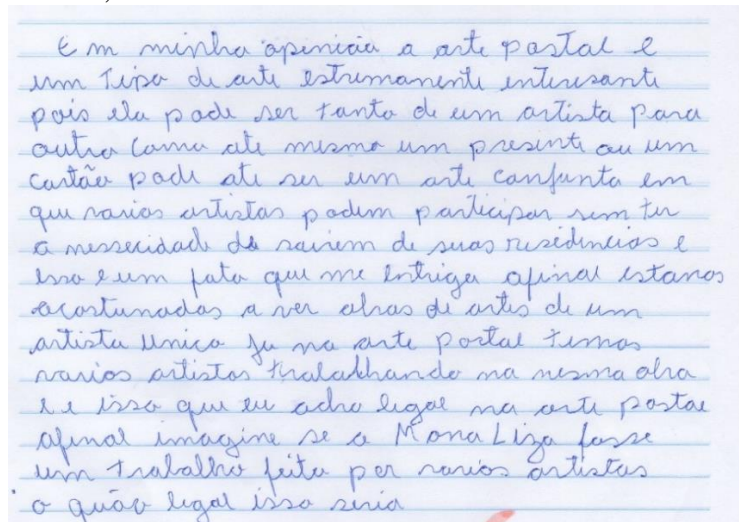 Em minha openiciãu a arte postal e
um Tipo de arte estrumanente enteresante
pois ela pode ser tanto de um artista para
outro como ate mesmo um presente ou um
cartão pode ate ser um arte conjunta em
que varios artistas podem participar sem ter
a nessecidade de sairem de suas residencias e
isso e um fato que me intriga afinal estanos
acostunados a ver obras de artes de um
artista unico ja na arte postal temos
varios artistas trabalhando na mesma obra
e e isso que eu acho legal na arte postal
afinal imagine se a Mona Liza fosse
um trabalho feito por varios artistas
o quão legal isso seria